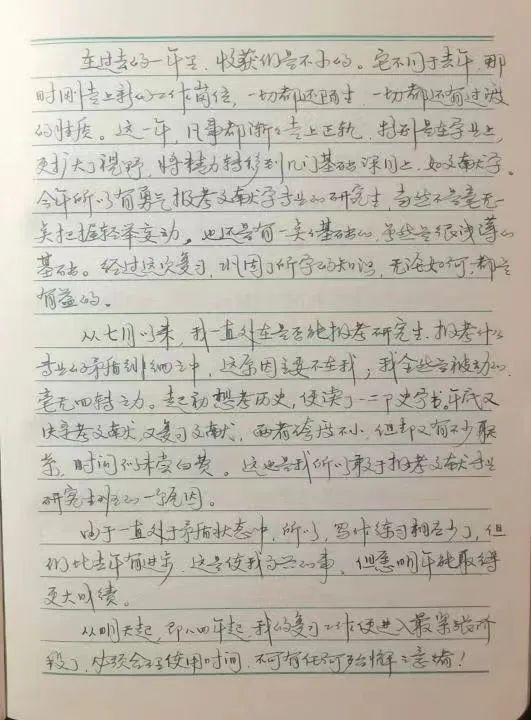 在过去的一年里，收获仍是不小的。它不同于去年，那
时刚走上新的工作岗位，一切都还陌生，一切都还有过渡
的性质。这一年，凡事都渐渐走上正轨，特别是在学业上，
更扩大了视野，将精力转移到几门基础课目上，如文献学。
今年所以有勇气报考文献学专业的研究生，当然不是毫无
一点把握轻举妄动，也还是有一点基础的，虽然是很浅薄的
基础。经过这次复习，巩固了所学的知识，无论如何，都是
有益的。
从七月以来，我一直处在是否能报考研究生、报考什么
专业的矛盾剥细之中，这原因主要不在我；我全然是被动的，
毫无回转之力。起初想考历史，便读了一二部史学书。年底又
决定考文献，又复习文献，两者跨度不小，但却又有不少联
系，时间仍未尝白费。这也是我所以敢于报考文献专业
研究生的一个原因。
由于一直处于矛盾状态中，所以，写作练习相应少了，但
仍比去年有进步，这是使我高兴的事，但愿明年能取得
更大成绩。
从明天起，即八四年起，我的复习工作便进入最紧张阶
段了，必须合理使用时间，不可有任何殆懈之意绪！